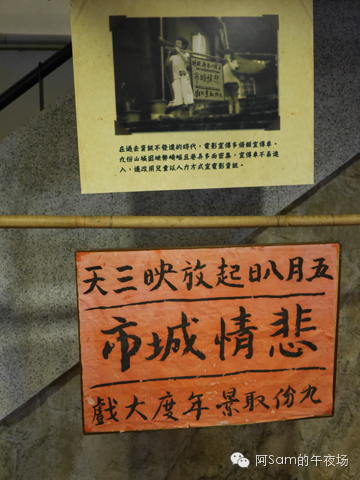 在過去資訊不發達的時代，電影宣傳多倚賴宣傳車。
九份山城因地勢崎嶇且巷弄多而密集，宣傳車不易進
入，遂改用兒童以人力方式宣電影資訊。
五月八日起放映三天
悲情城市
九份取景年度大戲
阿Sam的午夜场